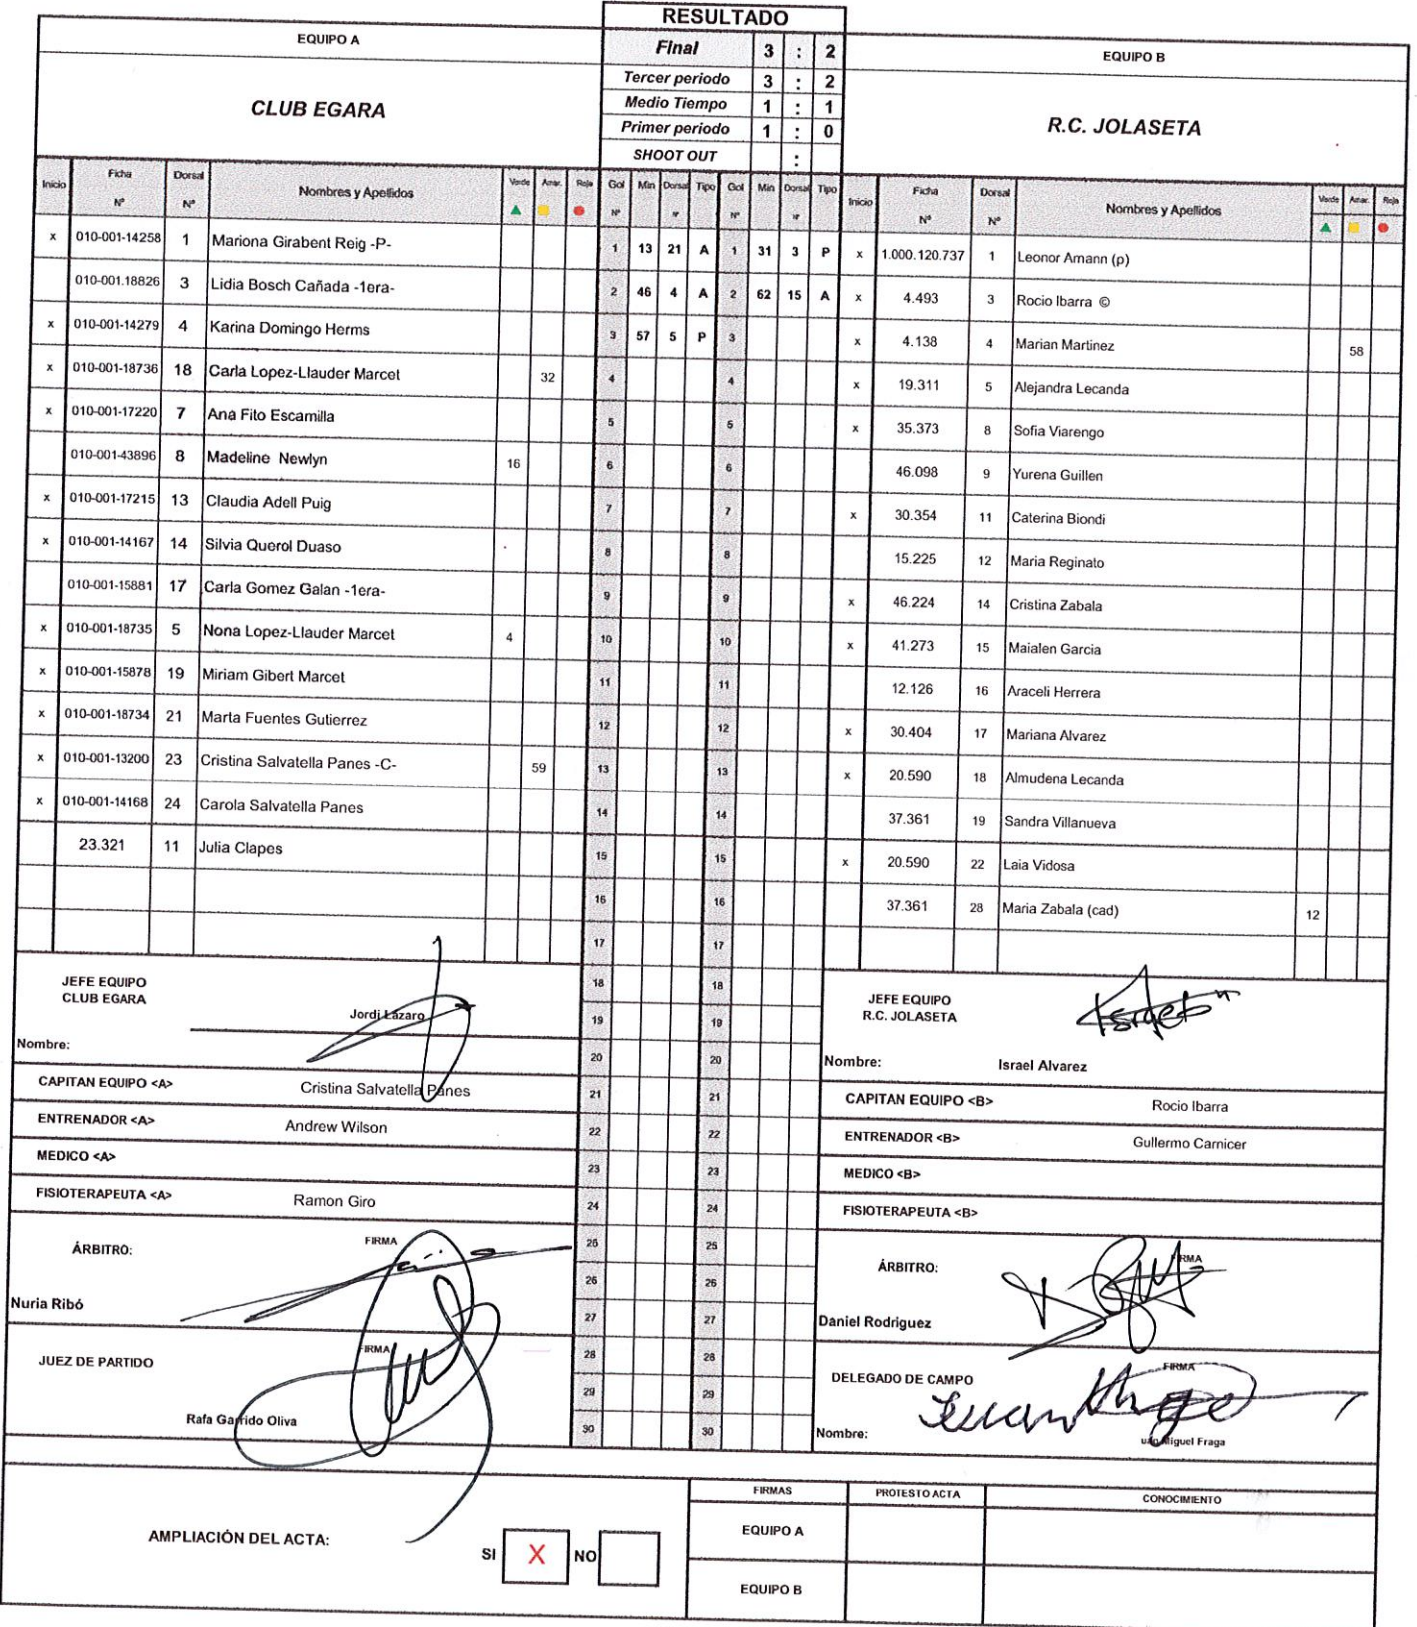 RESULTADO
EQUIPO A
CLUB EGARA
Final 3 : 2
Tercer periodo 3 : 2
Medio Tiempo 1 : 1
Primer periodo 1 : 0
SHOOT OUT :
EQUIPO B
R.C. JOLASETA
Inicio Ficha Nº Dorsal Nº Nombres y Apellidos Verde Amar. Roja
x 010-001-14258 1 Mariona Girabent Reig -P-
010-001.18826 3 Lidia Bosch Cañada -1era-
x 010-001-14279 4 Karina Domingo Herms
x 010-001-18736 18 Carla Lopez-Llauder Marcet 32
x 010-001-17220 7 Ana Fito Escamilla
010-001-43896 8 Madeline Newlyn 16
x 010-001-17215 13 Claudia Adell Puig
x 010-001-14167 14 Silvia Querol Duaso
010-001-15881 17 Carla Gomez Galan -1era-
x 010-001-18735 5 Nona Lopez-Llauder Marcet 4
x 010-001-15878 19 Miriam Gibert Marcet
x 010-001-18734 21 Marta Fuentes Gutierrez
x 010-001-13200 23 Cristina Salvatella Panes -C- 59
x 010-001-14168 24 Carola Salvatella Panes
23.321 11 Julia Clapes
Gol Nº Min Dorsal nº Tipo Gol Nº Min Dorsal nº Tipo
1 13 21 A 1 31 3 P
2 46 4 A 2 62 15 A
3 57 5 P 3
4 4
5 5
6 6
7 7
8 8
9 9
10 10
11 11
12 12
13 13
14 14
15 15
16 16
17 17
18 18
19 19
20 20
21 21
22 22
23 23
24 24
25 25
26 26
27 27
28 28
29 29
30 30
Inicio Ficha Nº Dorsal Nº Nombres y Apellidos Verde Amar. Roja
x 1.000.120.737 1 Leonor Amann (p)
x 4.493 3 Rocio Ibarra ©
x 4.138 4 Marian Martinez 58
x 19.311 5 Alejandra Lecanda
x 35.373 8 Sofia Viarengo
46.098 9 Yurena Guillen
x 30.354 11 Caterina Biondi
15.225 12 Maria Reginato
x 46.224 14 Cristina Zabala
x 41.273 15 Maialen Garcia
12.126 16 Araceli Herrera
x 30.404 17 Mariana Alvarez
x 20.590 18 Almudena Lecanda
37.361 19 Sandra Villanueva
x 20.590 22 Laia Vidosa
37.361 28 Maria Zabala (cad) 12
JEFE EQUIPO
CLUB EGARA
Jordi Lázaro
Nombre:
CAPITAN EQUIPO <A> Cristina Salvatella Panes
ENTRENADOR <A> Andrew Wilson
MEDICO <A>
FISIOTERAPEUTA <A> Ramon Giro
ÁRBITRO: FIRMA
Nuria Ribó
JUEZ DE PARTIDO FIRMA
Rafa Garrido Oliva
JEFE EQUIPO
R.C. JOLASETA
Nombre: Israel Alvarez
CAPITAN EQUIPO <B> Rocio Ibarra
ENTRENADOR <B> Gullermo Carnicer
MEDICO <B>
FISIOTERAPEUTA <B>
ÁRBITRO: FIRMA
Daniel Rodriguez
DELEGADO DE CAMPO FIRMA
Nombre: Miguel Fraga
AMPLIACIÓN DEL ACTA: SI X NO
FIRMAS PROTESTO ACTA CONOCIMIENTO
EQUIPO A
EQUIPO B